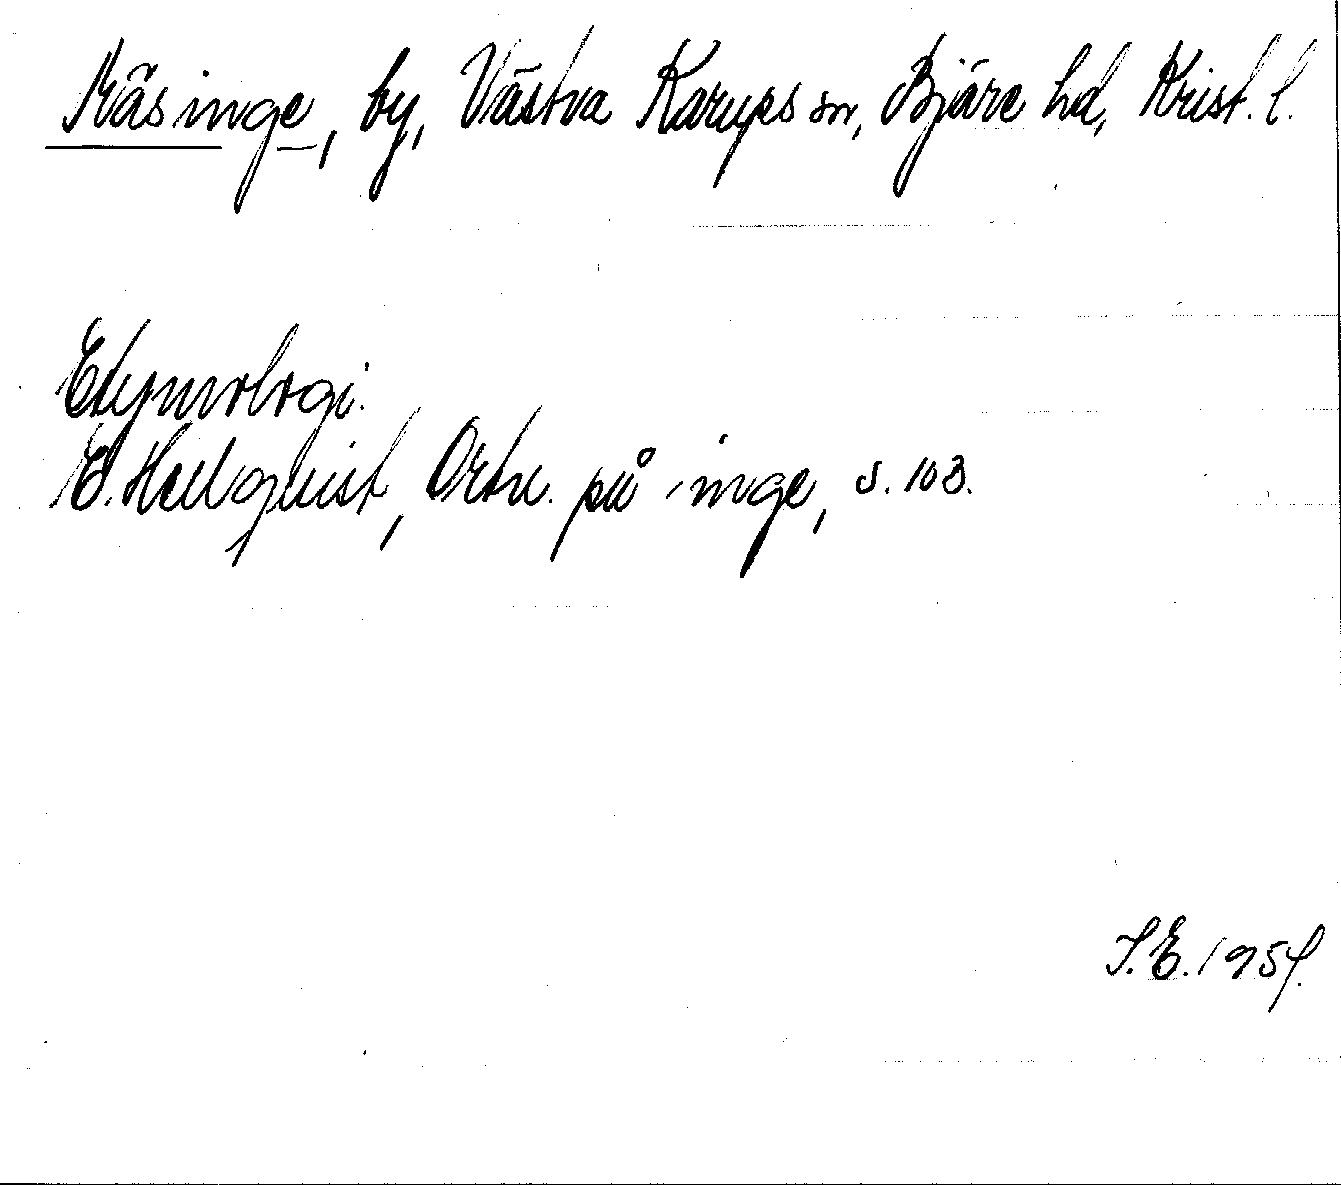 Näsinge, by, Västra Karups sn, Bjäre hd, Krist. l.
Etymologi:
E. Hellquist, Ortn. på inge, s. 103.
S.E. 1954.